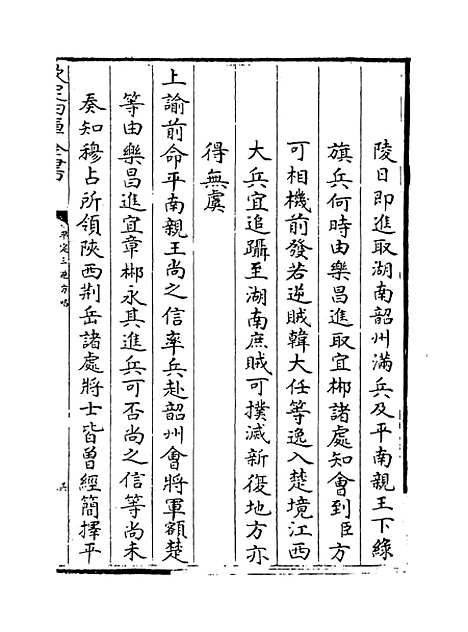 陵日即進取湖南韶州滿兵及平南親王下綠
旗兵何時由樂昌進取宜郴諸處知會到臣方
可相機前發若逆賊韓大任等逸入楚境江西
大兵宜追躡至湖南庶賊可撲滅新復地方亦
得無虞
上諭前命平南親王尚之信率兵赴韶州會將軍額楚
等由樂昌進宜章郴永其進兵可否尚之信等尚未
奏知穆占所領陝西荆岳諸處將士皆曾經簡擇平
欽定四庫全書
平定三逆方略